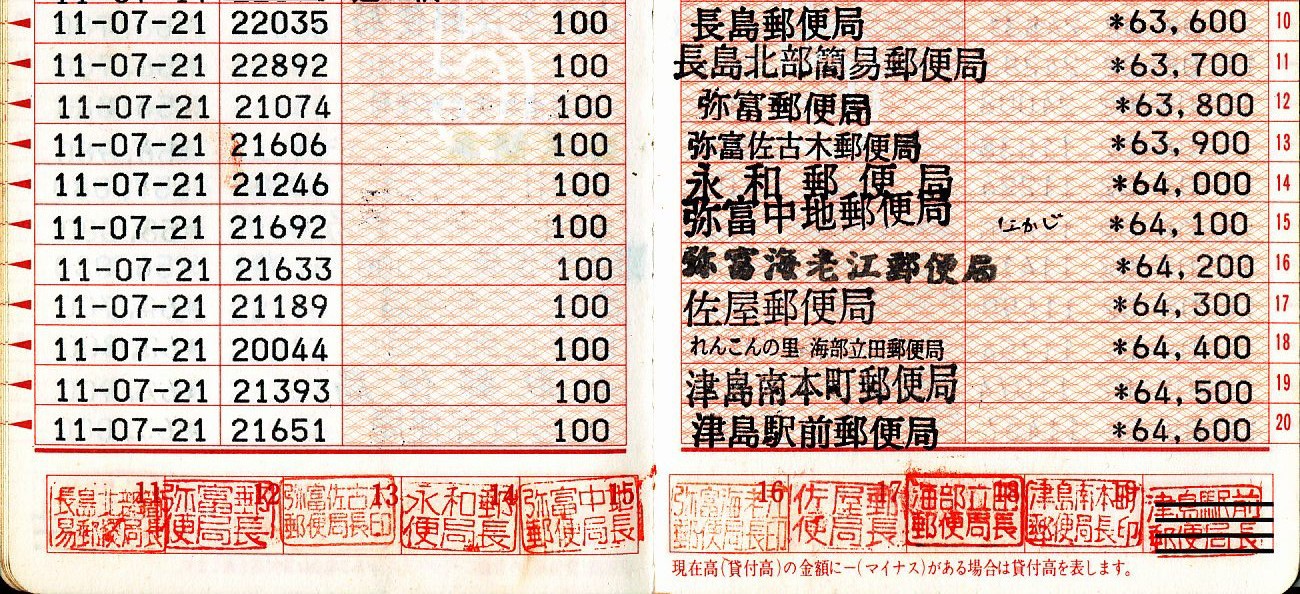 11-07-21 22035 100 長島郵便局 *63,600 10
11-07-21 22892 100 長島北部簡易郵便局 *63,700 11
11-07-21 21074 100 弥富郵便局 *63,800 12
11-07-21 21606 100 弥富佐古木郵便局 *63,900 13
11-07-21 21246 100 永和郵便局 *64,000 14
11-07-21 21692 100 弥富中地郵便局 なかじ *64,100 15
11-07-21 21633 100 弥富海老江郵便局 *64,200 16
11-07-21 21189 100 佐屋郵便局 *64,300 17
11-07-21 20044 100 れんこんの里 海部立田郵便局 *64,400 18
11-07-21 21393 100 津島南本町郵便局 *64,500 19
11-07-21 21651 100 津島駅前郵便局 *64,600 20
11 長島北部簡易郵便局長
12 弥富郵便局長
13 弥富佐古木郵便局長印
14 永和郵便局長
15 弥富中地郵便局長
16 弥富海老江郵便局長印
17 佐屋郵便局長
18 海部立田郵便局長
19 津島南本町郵便局長印
津島駅前郵便局長
現在高(貸付高)の金額に−(マイナス)がある場合は貸付高を表します。